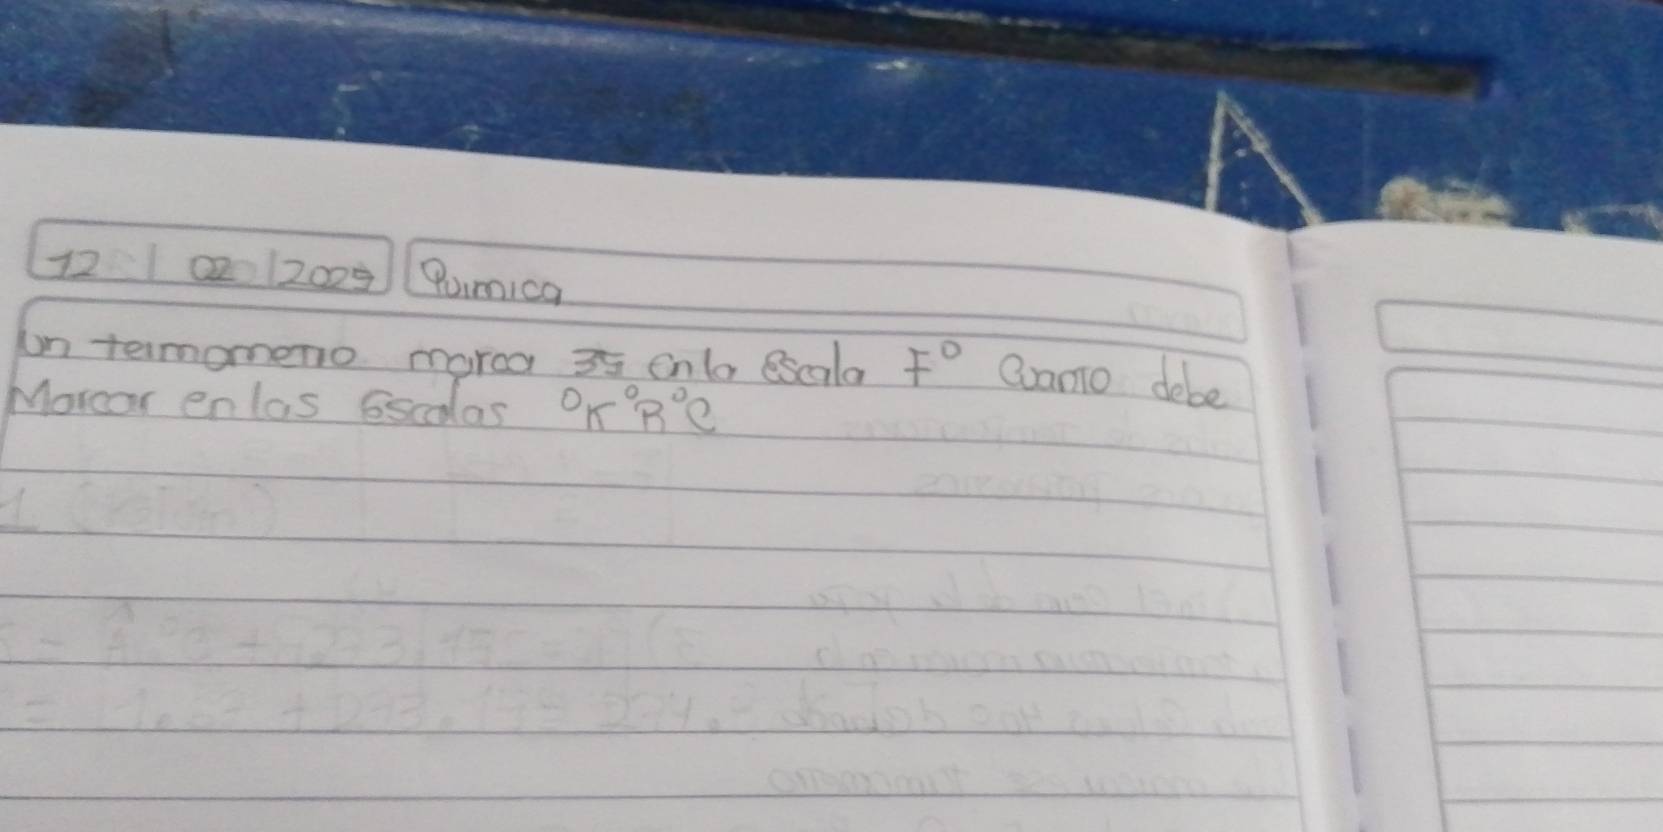 12 | 02 | 2025 Quimica
un termometro marca 35 en la escala F° Cuanto debe
Marcar en las Escalas °K °R °C